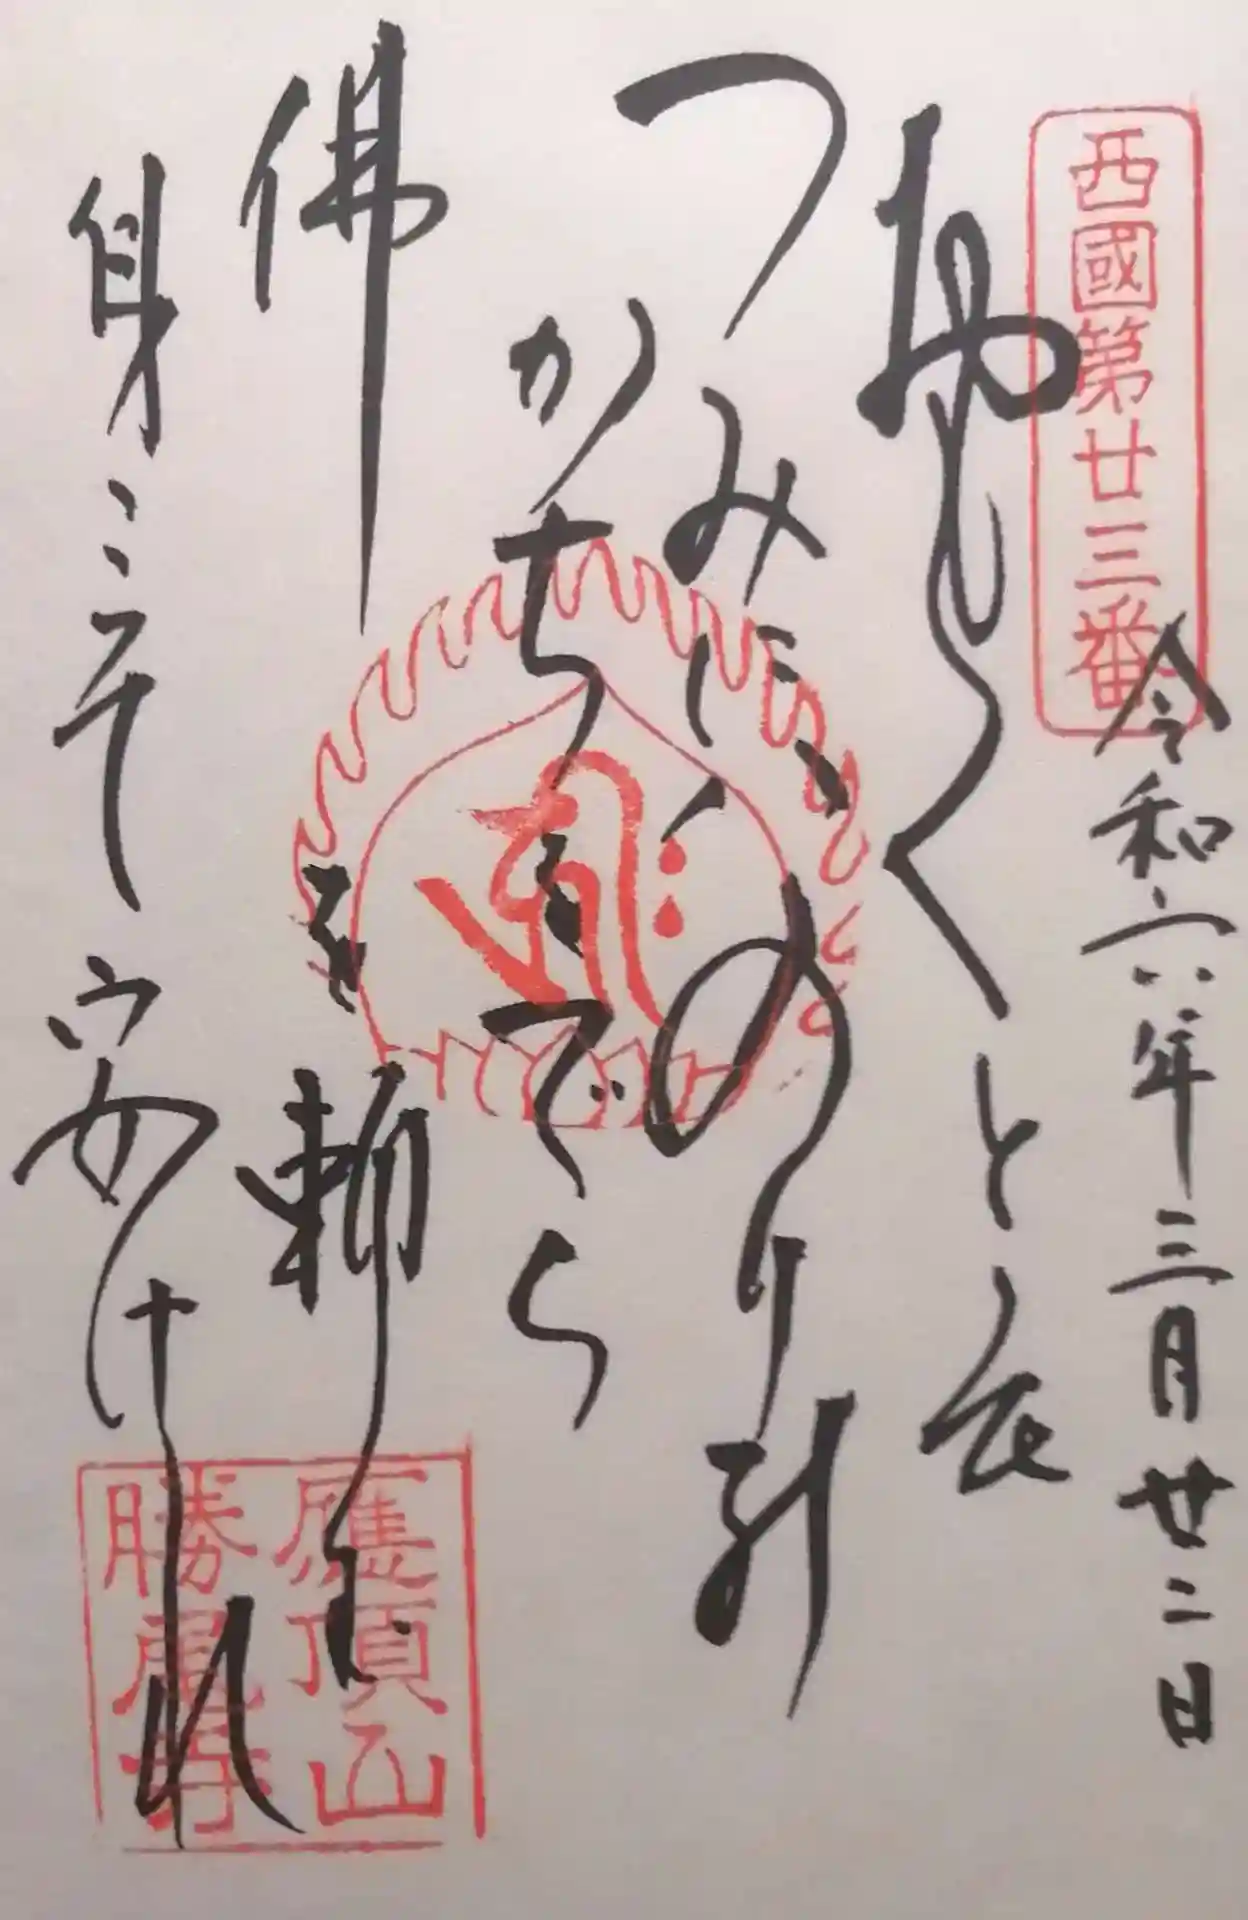 西國第廿三番
令和六年三月廿二日
おもくとも
つみにはのり能
かちをでら
佛を頼む
身こそ安けれ
應頂山
勝尾寺